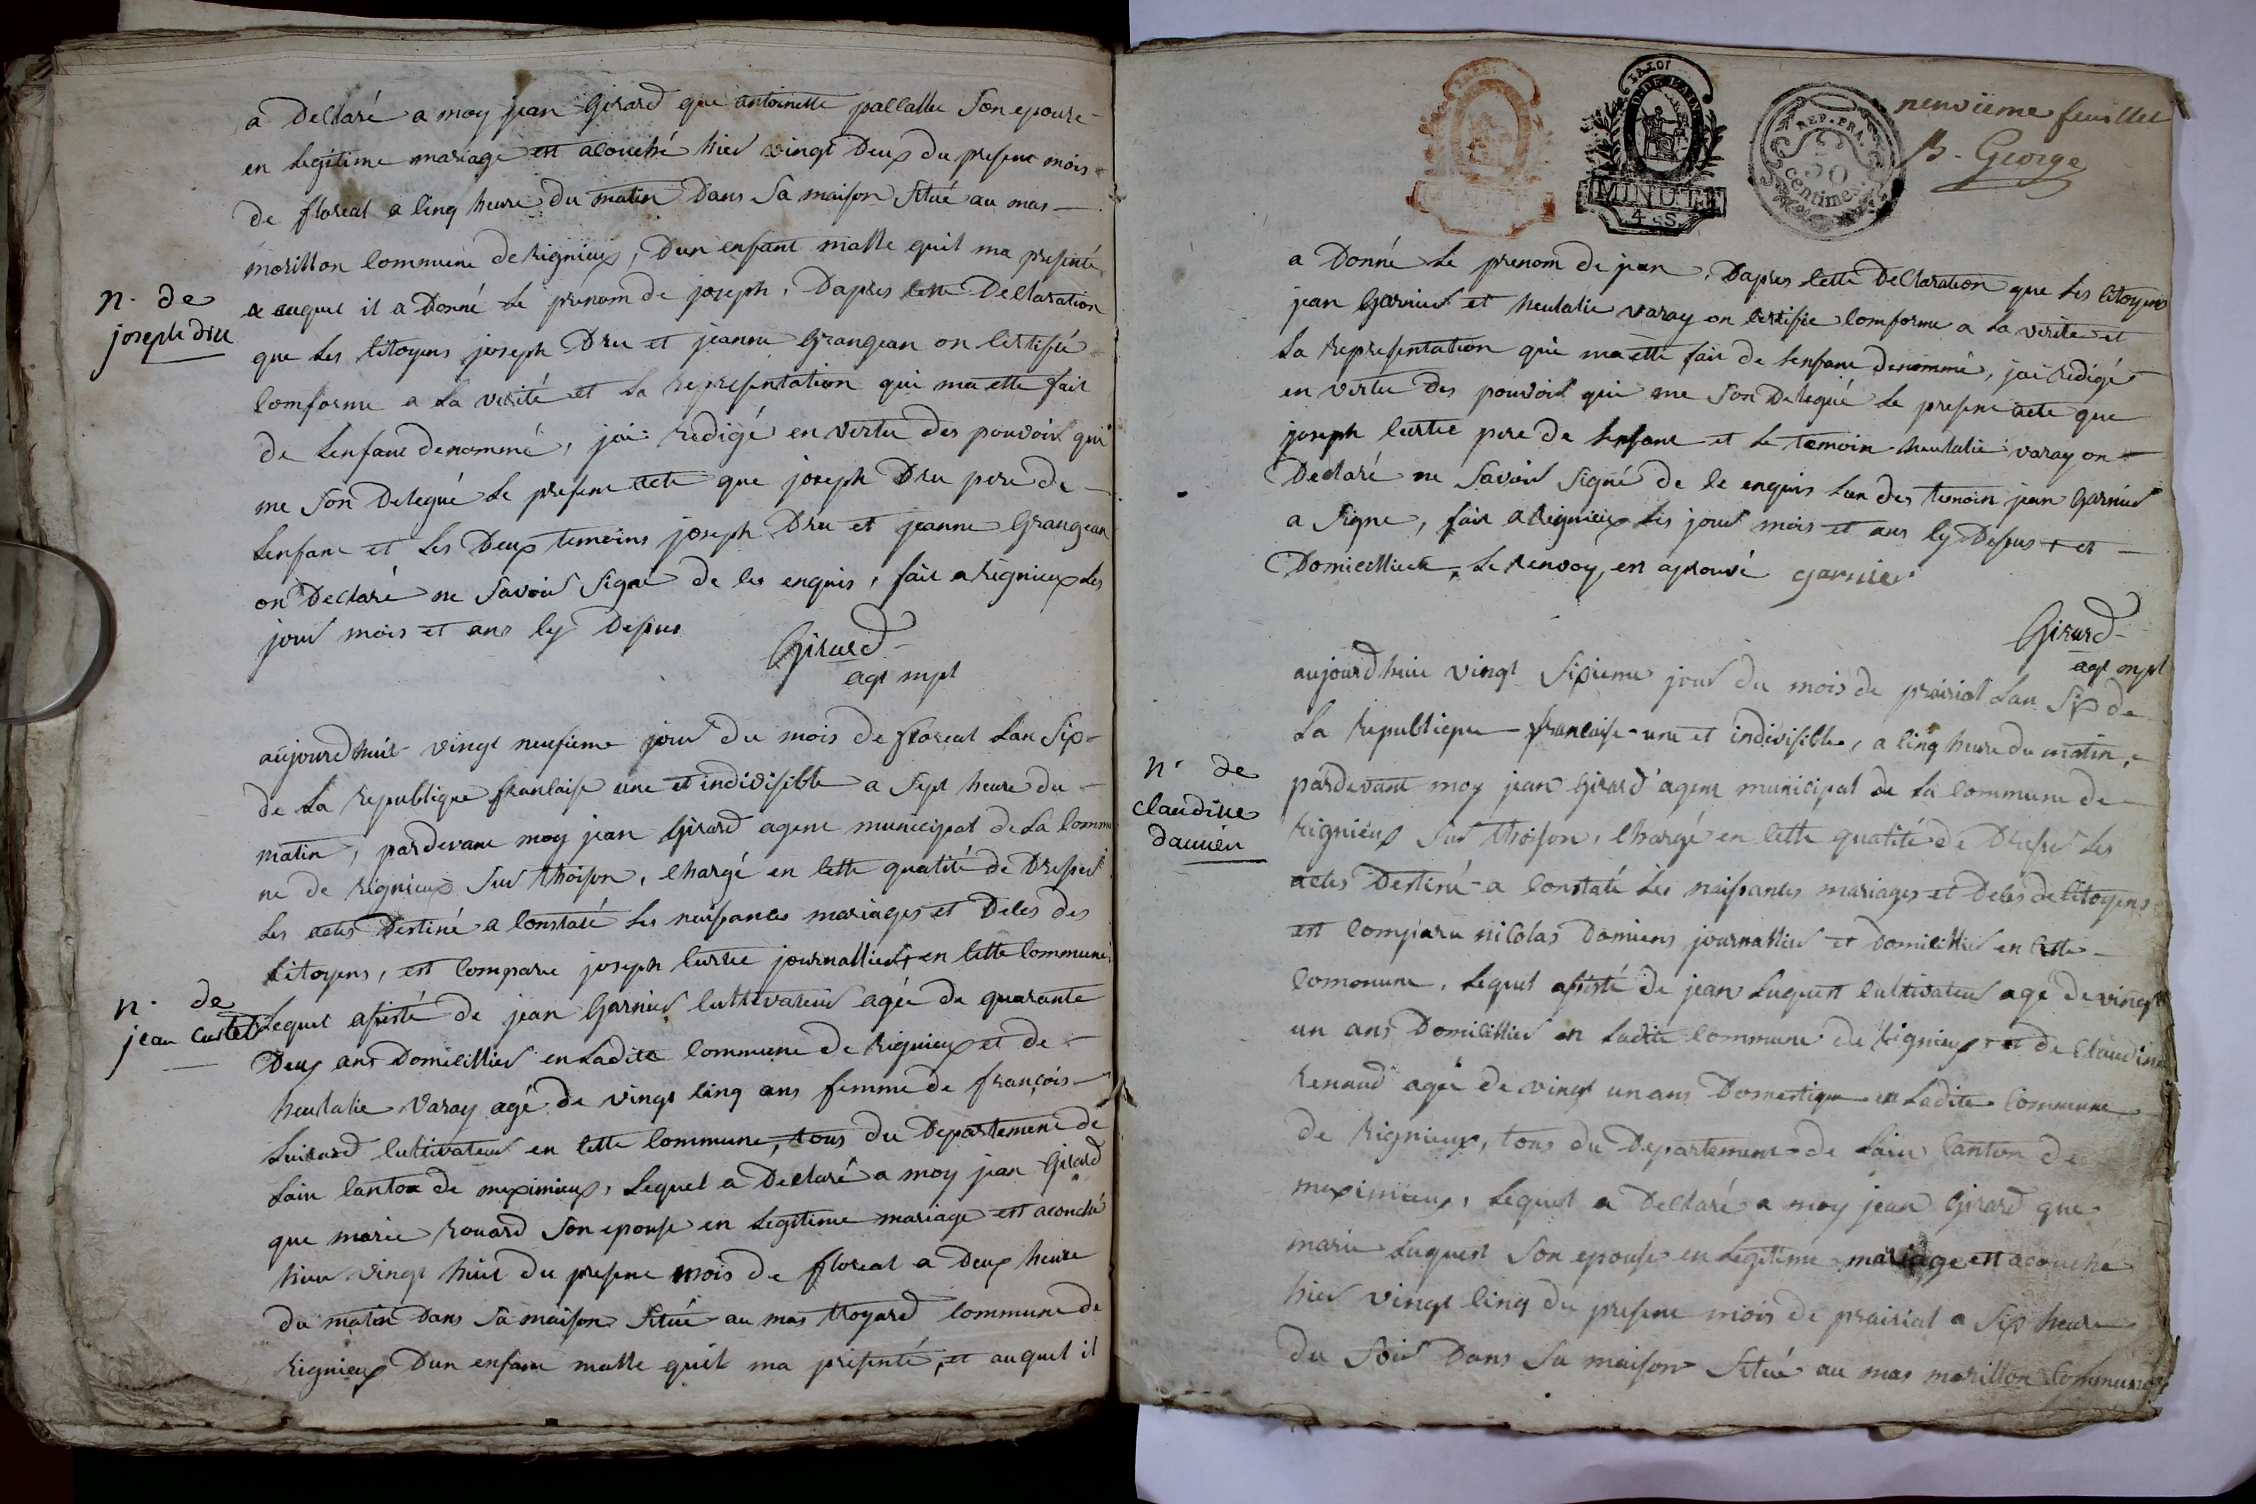 a Declaré a moy jean Girard que antoinette pallatte son epouse
en Legitime mariage est acouché hier vingt Deux du present mois
de floreal a cinq heure du matin Dans sa maison situé au mas
morillon commune de Rignieux, D'un enfant malle quil ma presenté
& auquel il a Donné Le prenom de joseph, Dapres cette Declaration
que Les citoyens joseph Dru et jeanne Grangean on certifié
comforme a La verité et La representation qui ma etté fait
de Lenfant denommé, jai redigé en vertu des pouvoir qui
me son Delegué Le present acte que joseph Dru pere de
Lenfant et Les Deux temoins joseph Dru et jeanne Grangean
on Declaré ne savoir signé de les enquis, fait a Rignieux Les
jour mois et ans cy Dessus
Girard
agt mpl
n. de
joseph dru
aujourdhuit vingt neufieme jour du mois de floreal Lan six
de La republique francaise une et indivisible a sept heure du
matin, pardevant moy jean Girard agent municipal de La commu
ne de Rignieux sur thoison, chargé en cette qualité de Dresser
Les actes Destiné a constaté Les naissances mariages et Deces des
citoyens, est comparu joseph curtet journallier + en cette commune
n. de
jean curtet
Lequel assisté de jean Garnier cultivateur agée de quarante
Deux ans Domicillier en Ladite commune de Rignieux et de
heulalie Varay agé de vingt cinq ans femme de françois
Luirard cultivateur en cette commune, tous du Departement de
Lain canton de meximieux, Lequel a Declaré a moy jean Girard
que marie Rouard son epouse en Legitime mariage est acouché
hier vingt huit du present mois de floreal a Deux heure
du matin Dans sa maison situé au mas troyard commune de
Rignieux Dun enfant malle quil ma presenté, et auquel il
MINUTE
4 S
REP. FRA.
50
centimes
neuvieme feuillet
B. George
a Donné Le prenom de jean, Dapres cette Declaration que Les citoyens
jean Garnier et heulalie varay on certifié comforme a La verite et
La representation qui ma etté fait de Lenfant denommé, jai redigé
en vertu des pouvoir qui me son Delegué Le present acte que
joseph curtet pere de Lenfant et Le temoin heulalie varay on
Declaré ne savoir signé de le enquis Lun des temoin jean Garnier
a signe, fait a Rignieux Les jour mois et ans cy Dessus + et
Domicillier, Le Renvoy en aprouvé garnier
Girard
agt mpl
aujourdhuit vingt sixieme jour du mois de prairial Lan six de
La Republique francaise une et indivisible, a cinq heure du matin,
n. de
claudine
damien
pardevant moy jean Girard agent municipal de La commune de
Rignieux sur thoison, chargé en cette qualité de Dresser Les
actes Destiné a constaté Les naissances mariages et Deces de citoyens
est comparu nicolas Damiens journallier et Domicillier en cette
commune, Lequel assisté de jean Luquet cultivateur agé de vingt
un ans Domicillier en Ladite commune de Rignieux et de claudine
Renaud agée de vingt un ans Domestique en Ladite commune
de Rignieux, tous du Departement de Lain canton de
meximieux, Lequel a Declaré a moy jean Girard que
marie Luquet son epouse en Legitime mariage est acouché
hier vingt cinq du present mois de prairial a six heure
du soir Dans sa maison situé au mas morillon commune